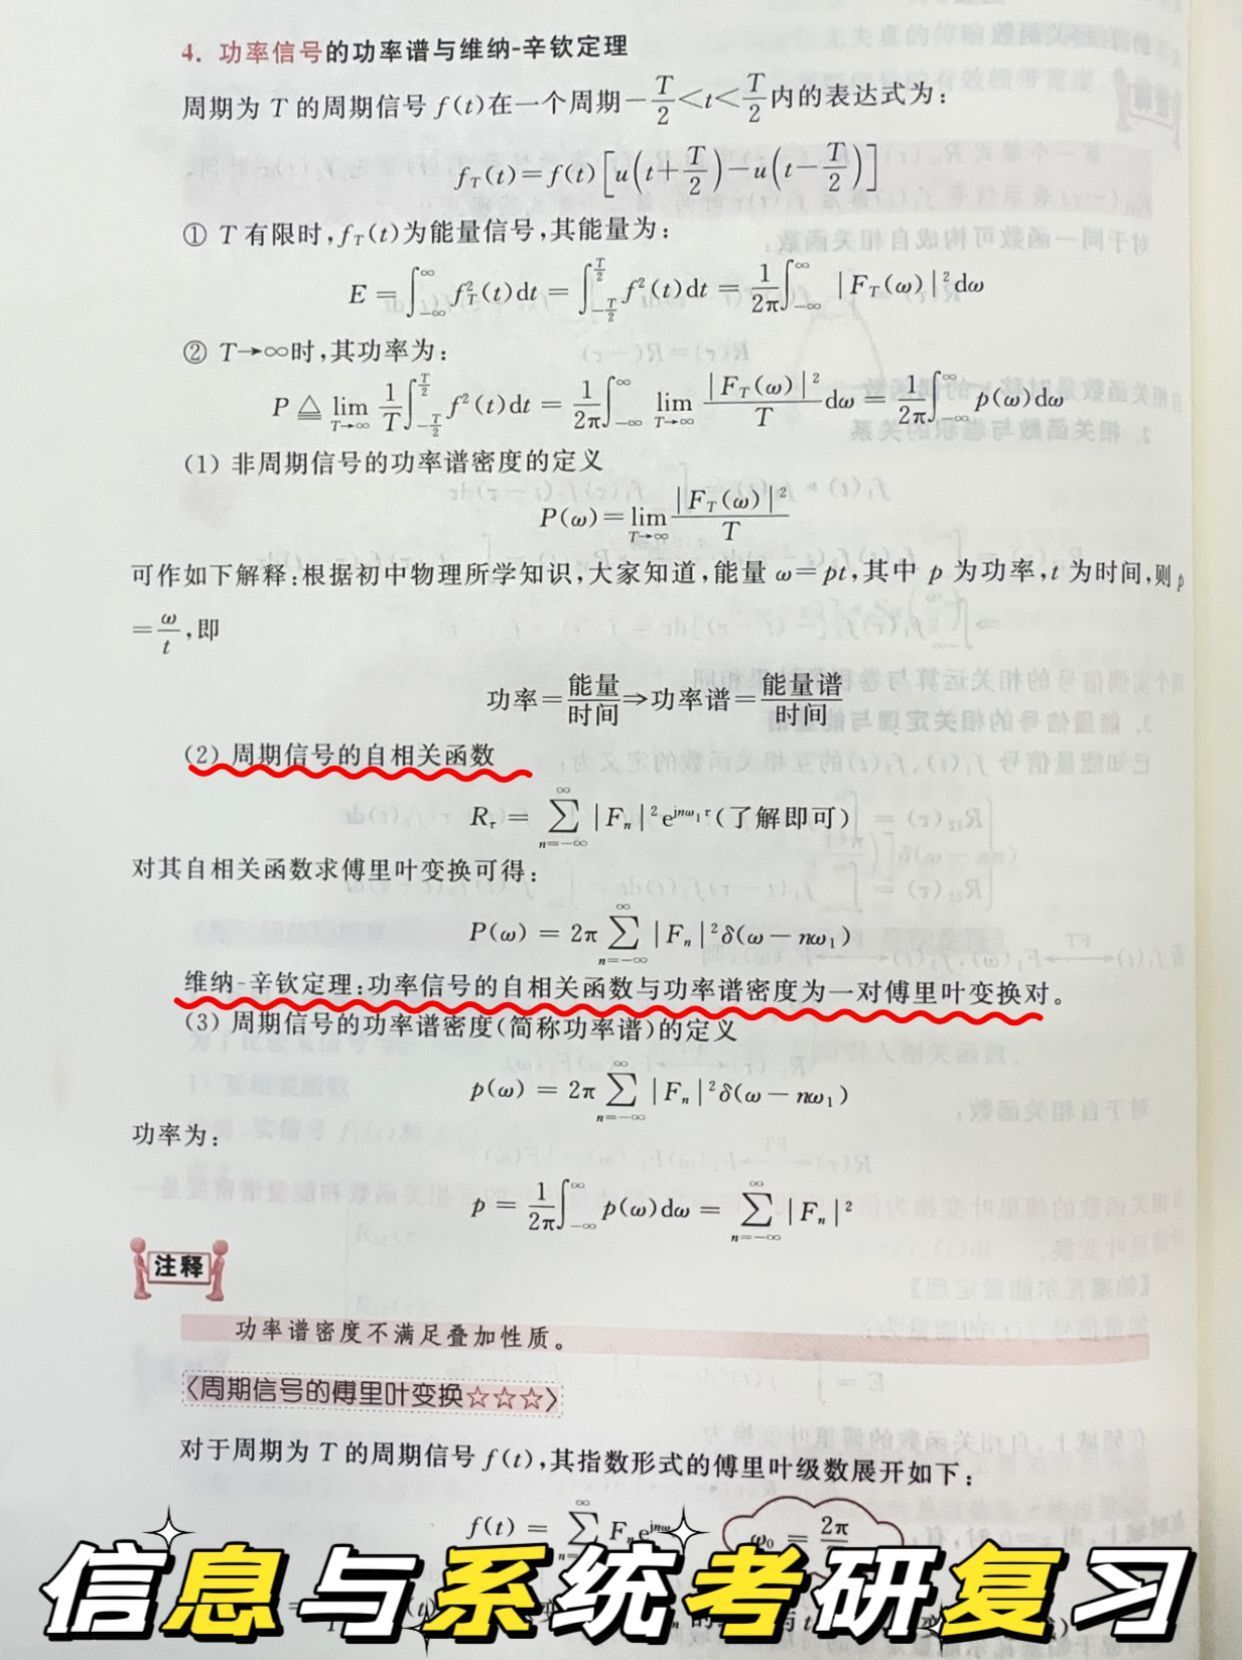 4. 功率信号的功率谱与维纳-辛钦定理
周期为 T 的周期信号 f(t)在一个周期－T/2＜t＜T/2内的表达式为：
f_T(t)=f(t)[u(t+T/2)-u(t-T/2)]
① T 有限时,f_T(t)为能量信号,其能量为：
E = ∫_{-∞}^{∞} f_T^2(t)dt = ∫_{-T/2}^{T/2} f^2(t)dt = 1/2π ∫_{-∞}^{∞} |F_T(ω)|^2 dω
② T→∞时,其功率为：
P ≜ lim_{T→∞} 1/T ∫_{-T/2}^{T/2} f^2(t)dt = 1/2π ∫_{-∞}^{∞} lim_{T→∞} |F_T(ω)|^2/T dω = 1/2π ∫_{-∞}^{∞} p(ω)dω
(1) 非周期信号的功率谱密度的定义
P(ω)=lim_{T→∞} |F_T(ω)|^2/T
可作如下解释:根据初中物理所学知识,大家知道,能量 ω=pt,其中 p 为功率,t 为时间,则 p
=ω/t,即
功率=能量/时间⇒功率谱=能量谱/时间
(2) 周期信号的自相关函数
R_τ = ∑_{n=-∞}^{∞} |F_n|^2 e^{jnω_1τ}(了解即可)
对其自相关函数求傅里叶变换可得：
P(ω) = 2π ∑_{n=-∞}^{∞} |F_n|^2 δ(ω－nω_1)
维纳-辛钦定理:功率信号的自相关函数与功率谱密度为一对傅里叶变换对。
(3) 周期信号的功率谱密度(简称功率谱)的定义
p(ω) = 2π ∑_{n=-∞}^{∞} |F_n|^2 δ(ω－nω_1)
功率为：
p = 1/2π ∫_{-∞}^{∞} p(ω)dω = ∑_{n=-∞}^{∞} |F_n|^2
注释
功率谱密度不满足叠加性质。
〈周期信号的傅里叶变换☆☆☆〉
对于周期为 T 的周期信号 f(t),其指数形式的傅里叶级数展开如下：
f(t) = ∑^{∞} F_n e^{jnω
ω_0 = 2π
信息与系统考研复习